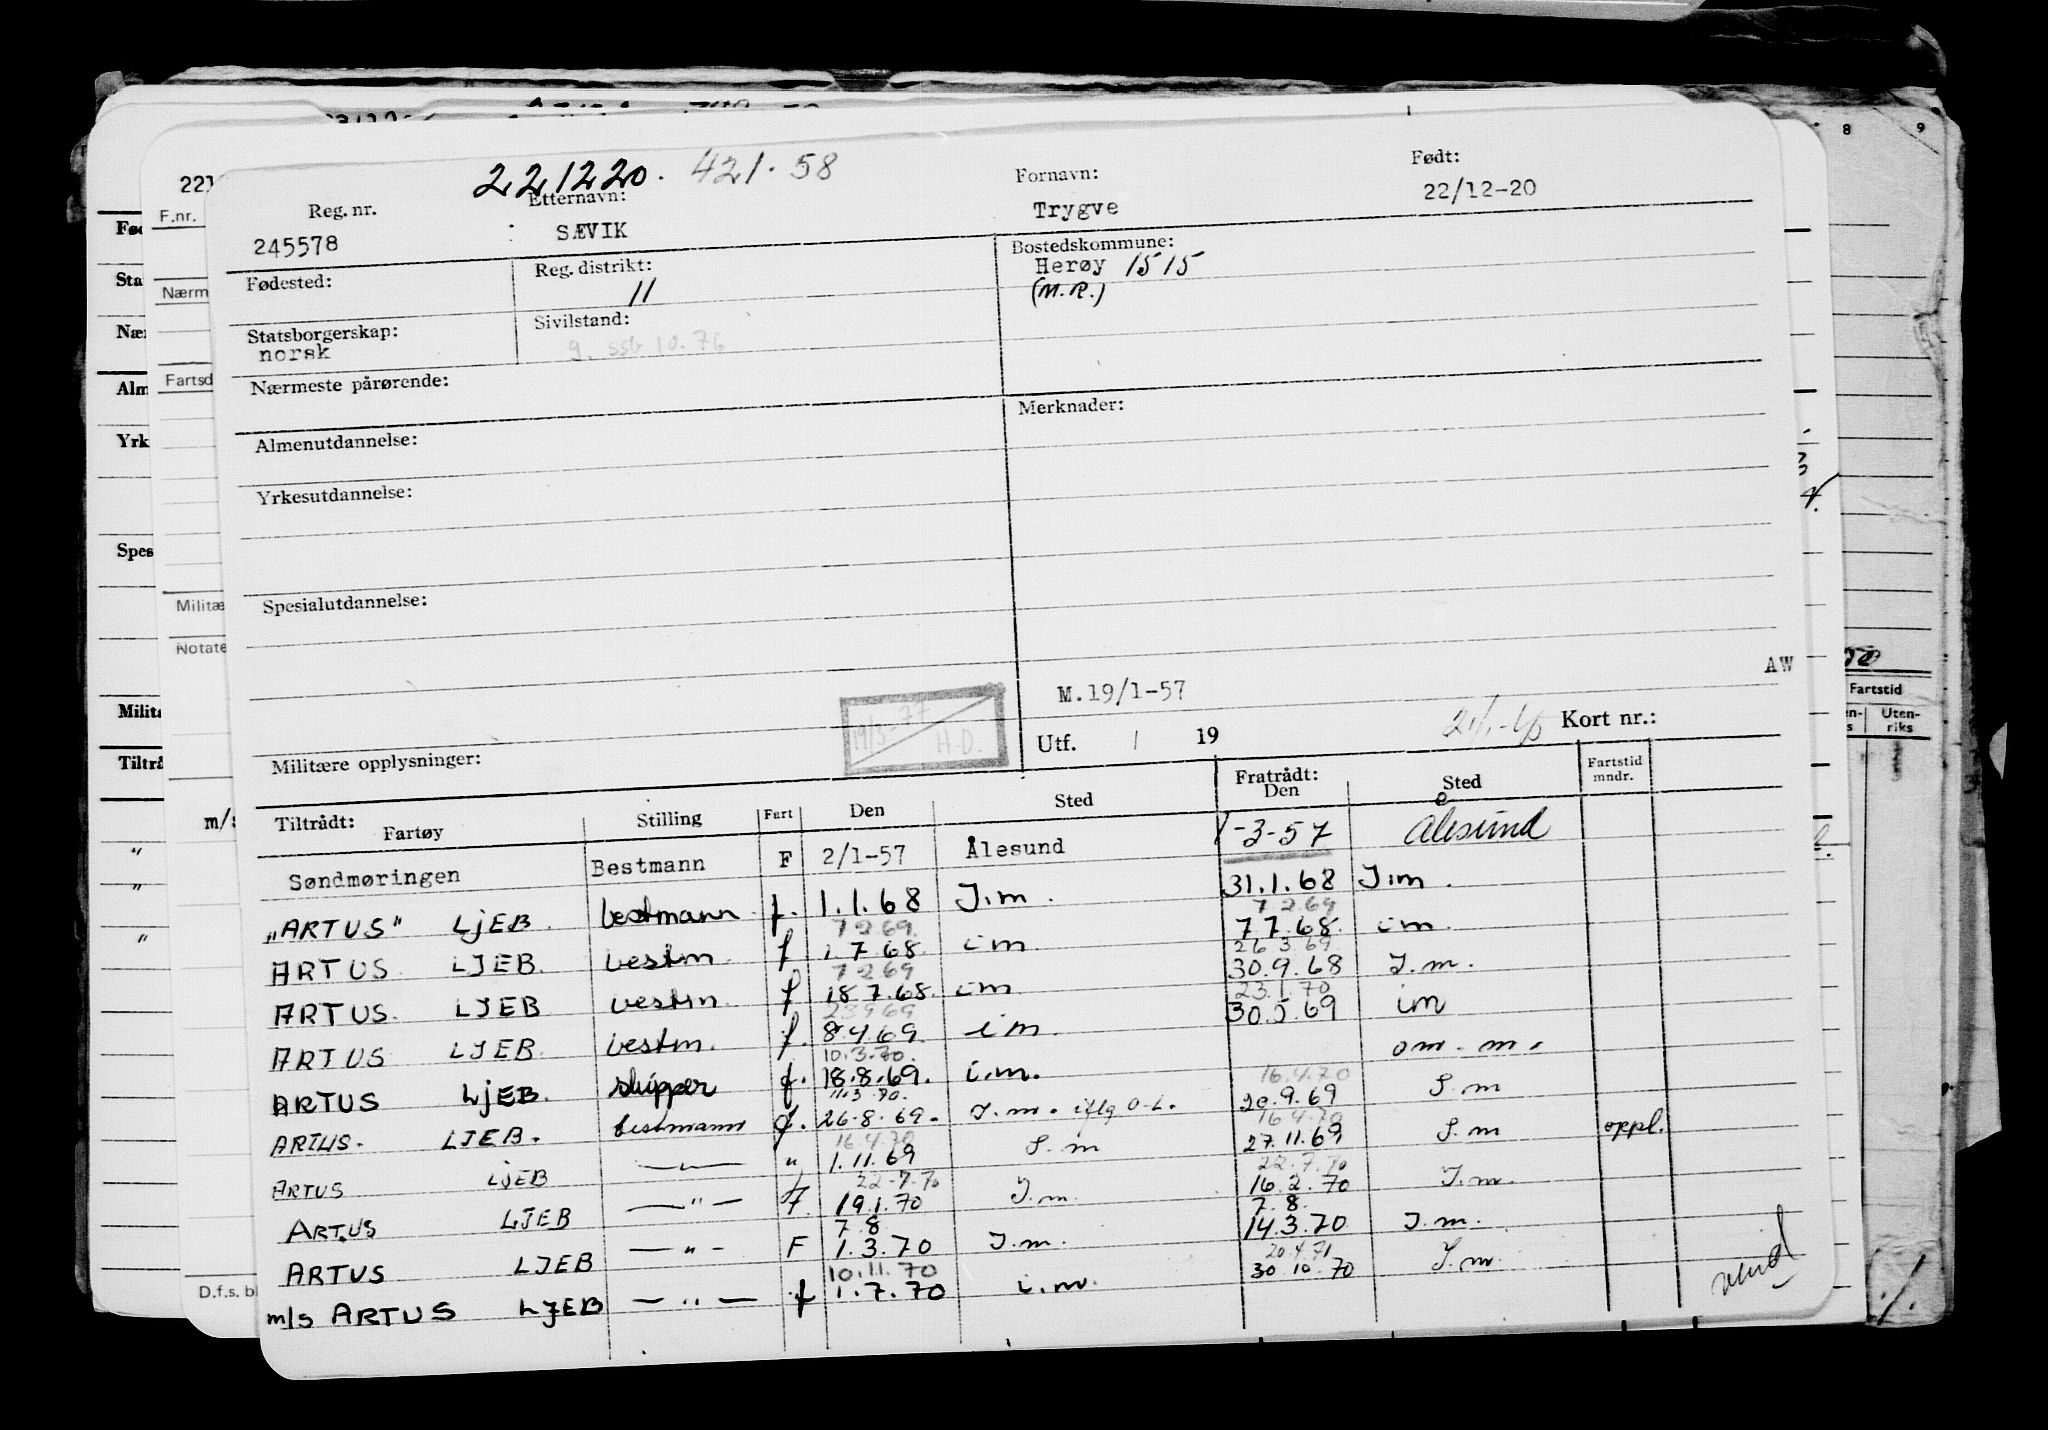 221220. 421.58
Reg. nr. Etternavn: Fornavn: Født:
245578 SÆVIK Trygve 22/12-20
Fødested: Reg. distrikt: Bostedskommune:
11 Herøy 1515
(M.R.)
Statsborgerskap: Sivilstand:
norsk g. ssb 10.76
Nærmeste pårørende:
Merknader:
Almenutdannelse:
Yrkesutdannelse:
Spesialutdannelse:
AW
M.19/1-57
19/5-77 H.D.
Militære opplysninger: Utf. / 19 Kort nr.:
Tiltrådt: Fratrådt:
Fartøy Stilling Fart Den Sted Den Sted Fartstid mndr.
Søndmøringen Bestmann F 2/1-57 Ålesund 1-3-57 Ålesund
"ARTUS" LjEB. bestmann f. 1.1.68 I.m. 31.1.68 I.m.
7 2 69 7 2 69
ARTUS LJEB. bestm. f 1.7.68. im 7.7.68. im.
7 2 69 26 3 69
ARTUS. LJEB bestm. f 18.7.68. im 30.9.68 I.m.
23.1.70
ARTUS LJEB. bestm. f. 8.4.69. im. 30.5.69 im
10.3.70.
ARTUS LjEB. skipper f. 18.8.69. i.m. om. m.
11.3.70. 16.4.70
ARTUS. LJEB. bestmann f. 26.8.69. I.m. iflg O-L. 20.9.69 I.m
16.4.70 16.4.70
ARTUS LJEB —"— " 1.11.69 I.m 27.11.69 I.m oppl.
22-7-70 22.7.70
ARTUS LJEB —"— F. 19.1.70 I.m. 16.2.70 I.m.
7.8 7.8.
ARTUS LJEB —"— F 1.3.70 I.m. 14.3.70 I.m.
10.11.70 20.4.71
m/s ARTUS LJEB —"— f 1.7.70 i.m. 30.10.70 I.m.
vend
F.nr.
Nærm
Fartsd
Militæ
Notate
m/s
D.f.s. bl
Fød
Sta
Nær
Alm
Yrk
Spes
Milita
Tiltrå
8 9
Fartstid
Uten-
riks